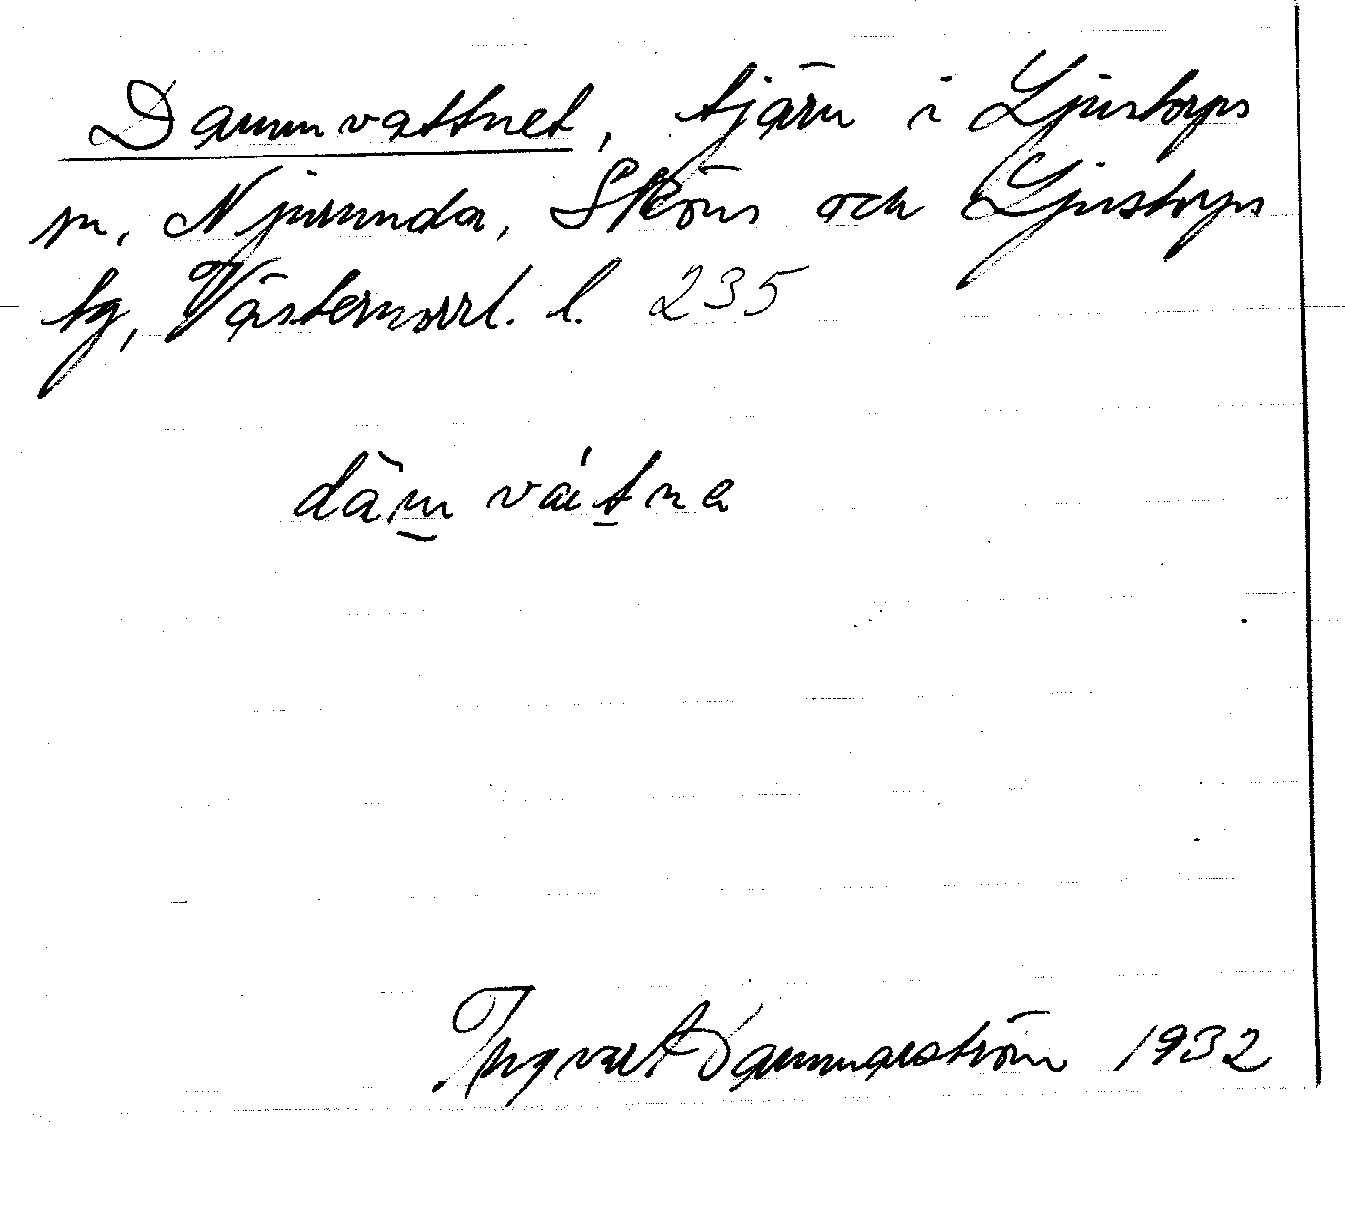 Dammvattnet, tjärn i Ljustorps
sn, Njurunda, Sköns och Ljustorps
tg, Västernorrl. l. 235
dȧ̀m̲ vát̲na
Ingvart Dammarström 1932